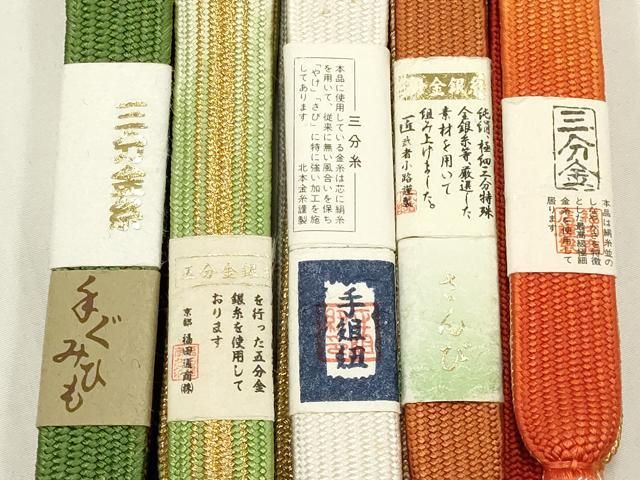 手ぐみひも
五分金銀
を行った五分金
銀糸を使用して
おります
京都 福田商商㈱
三分糸
本品に使用している金糸は芯に絹糸
を用いて、従来に無い風合いを保ち
「やけ」「さび」に特に強い加工を施
してあります。 北本金糸謹製
手組紐
金銀糸
純絹、極細三分特殊
金銀糸等、厳選した
素材を用いて
組み上げました。
匠 武者小路謹製
三分金
本品は絹糸並の
しなやかさを特徴
とした最高級極細
金糸を使用して
居ります